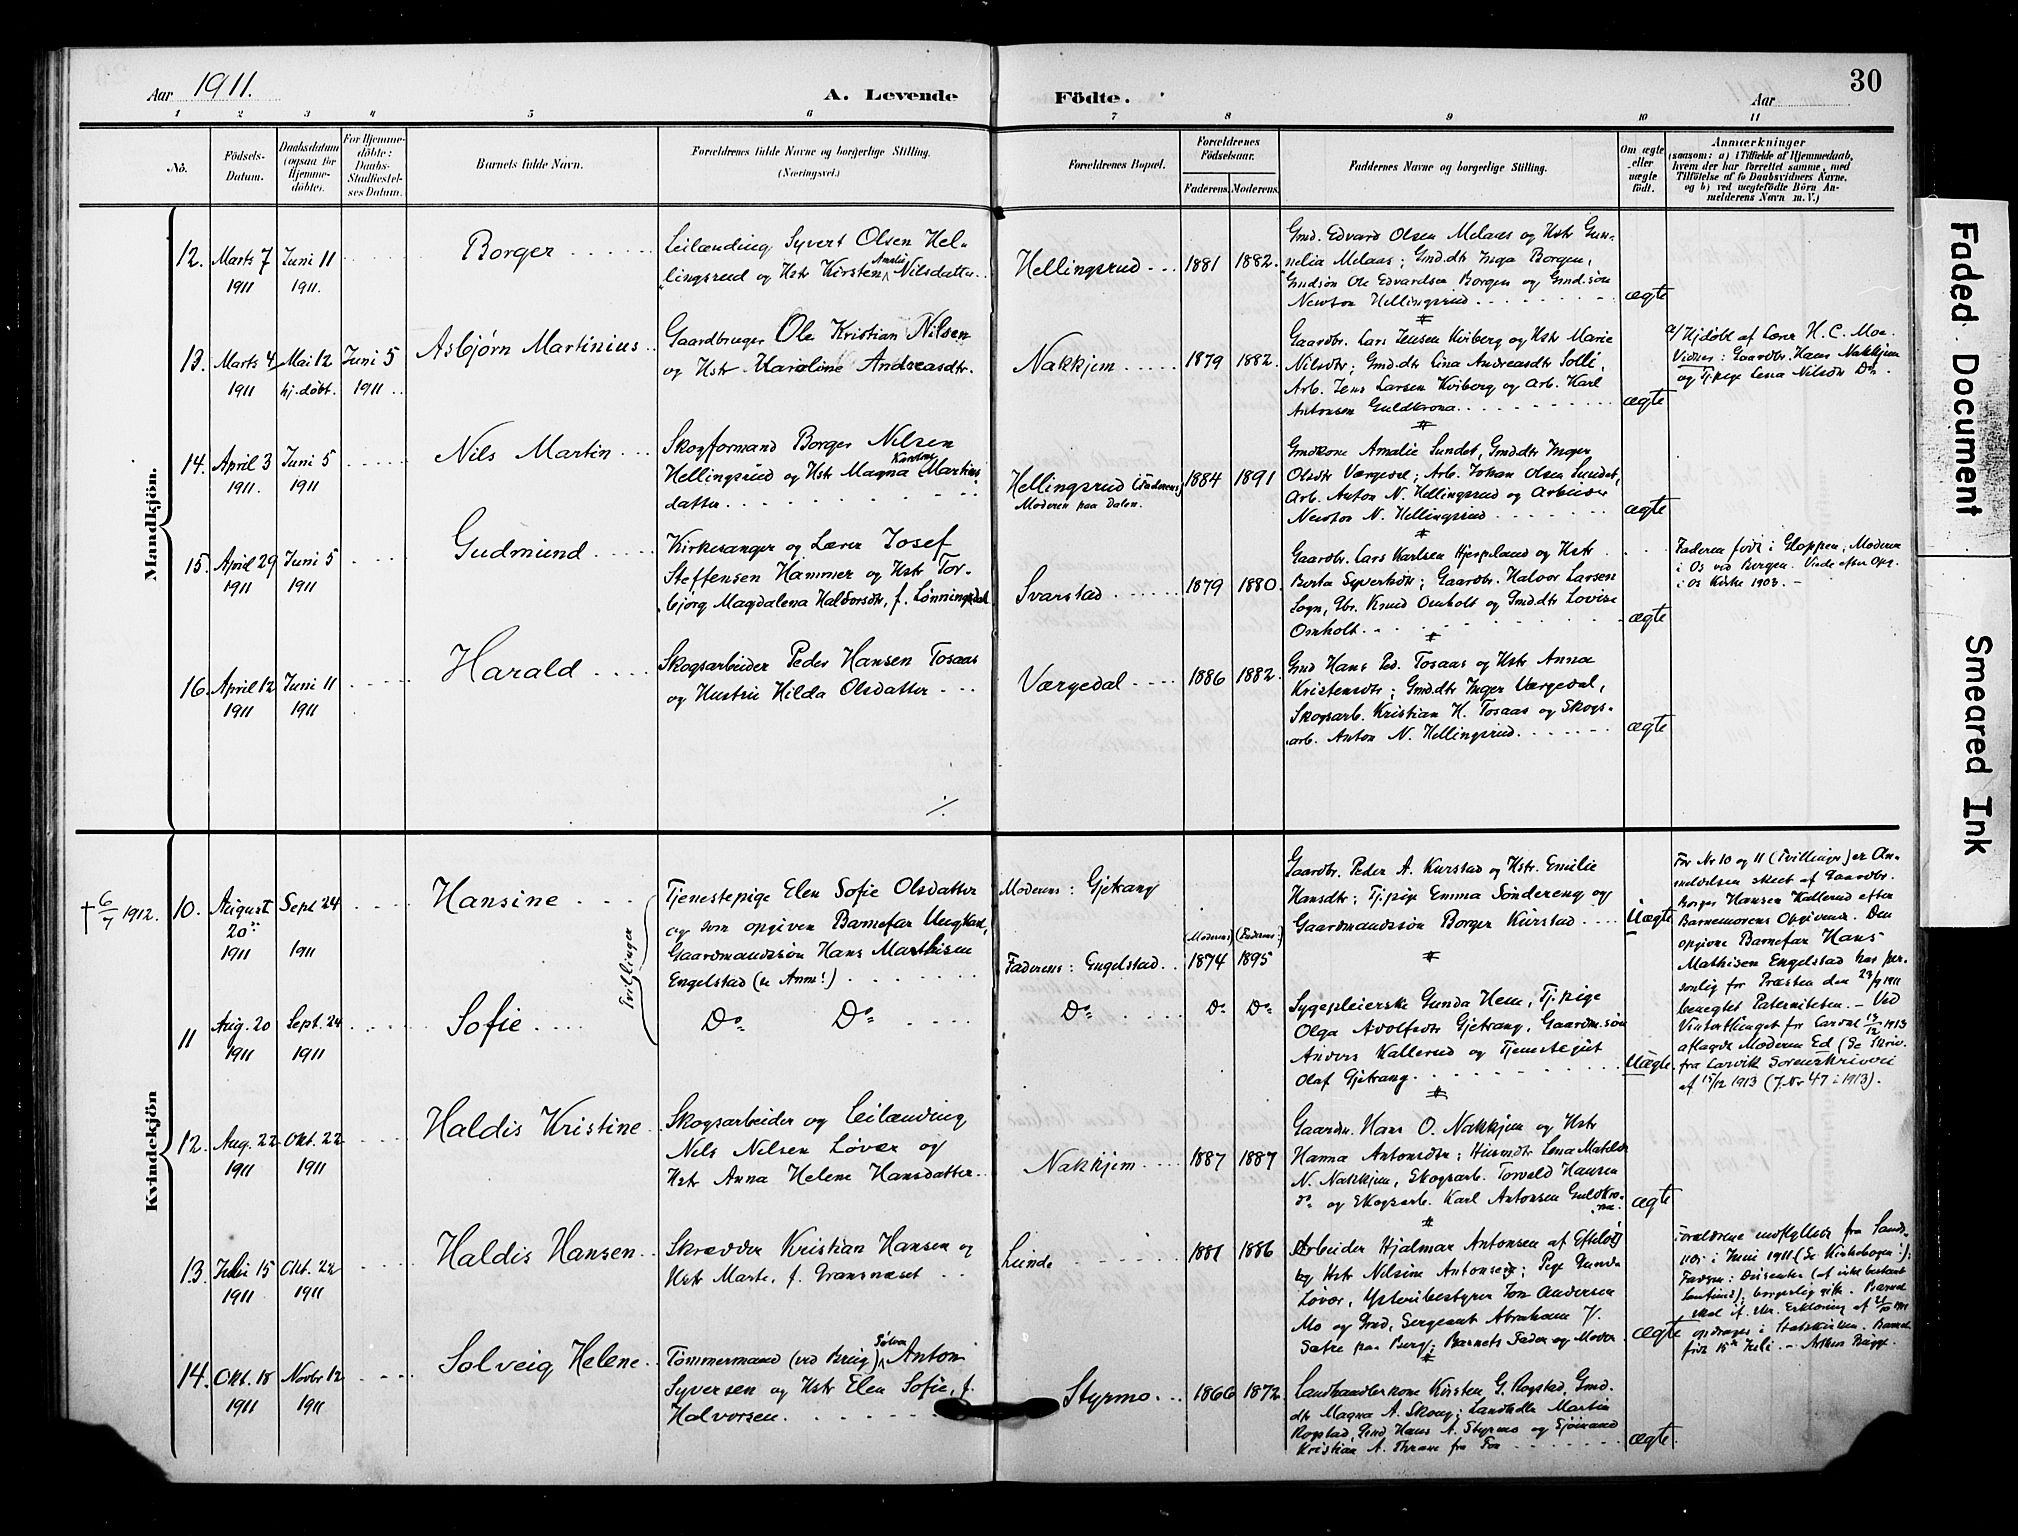 Aar 1911. A. Levende Födte. Aar 30
1 2 3 4 5 6 7 8 9 10 11
No.
Födsels-Datum.
Daabsdatum (ogsaa för Hjemme-döbte).
For Hjemme-döbte: Daabs-Stadfæstel-ses Datum.
Barnets fulde Navn.
Forældrenes fulde Navne og borgerlige Stilling.
(Næringsvei.)
Forældrenes Bopæl.
Forældrenes Födselsaar.
Faderens. Moderens.
Faddernes Navne og borgerlige Stilling.
Om ægte eller uægte födt.
Anmærkninger
(saasom: a) i Tilfælde af Hjemmedaab,
hvem der har forrettet samme, med
Tilföielse af to Daabsvidners Navne,
og b) ved uægtefödte Börn An-
melderens Navn m. V.)
Mandkjön.
12. Marts 7 1911 Juni 11 1911. Borger
Leilænding Syvert Olsen Hel-
lingsrud og Hstr Kirsten Amalie Nilsdatter
Hellingsrud 1881 1882.
Gmd. Edvard Olsen Melaas og Hstr Gun-
nelia Melaas; Gmd.dtr Inga Borgen,
Gmdsøn Ole Edvardsen Borgen og Gmd.søn
Newton Hellingsrud ægte
13. Marts 4 1911 Mai 12 hj.døbt. Juni 5 1911 Asbjørn Martinius
Gaardbruger Ole Kristian Nilsen
og Hstr Karoline Andreasdtr.
Nakkjem 1879 1882.
Gaardbr. Lars Jensen Kviberg og Hstr Marie
Nilsdtr; Gmd.dtr Lina Andreasdtr Solli,
Arb. Jens Larsen Kviberg og Arb. Karl
Antonsen Guldkrona. ægte
a/ Hjdøbt af Lærer H. C. Moe.
Vidner: Gaardbr. Hans Nakkjem
og Tj.pige Lena Nilsdn Do.
14. April 3 1911. Juni 5 1911 Nils Martin
Skogformand Borger Nilsen
Hellingsrud og Hstr Magna Karoline Martins
datter.
Hellingsrud (Faderens)
Moderen paa Dalen. 1884 1891
Gmdkone Amalie Sundet, Gmd.dtr Inger
OlsdtrVærgedal; Arb. Johan Olsen Sundet,
Arb. Anton N. Hellingsrud og Arbeider
Newton N. Hellingsrud ægte
15. April 29 1911 Juni 5 1911 Gudmund
Kirkesanger og Lærer Josef
Steffensen Hammer og Hstr Tor-
bjørg Magdalena Halvorsdtr, f. Lønningdal
Svarstad 1879 1880.
Gaardbr. Lars Karlsen Hjerpland og Hstr
Berta Syvertsdtr; Gaardbr. Halvor Larsen
Sogn, Gbr. Knud Omholt og Gmd.dtr Lovise
Omholt. ægte
Faderen født i Gloppen, Moderen
i Os ved Bergen. Viede efter Opg.
i Os Kirke 1903. –
16. April 12 1911 Juni 11 1911 Harald
Skogsarbeider Peder Hansen Tosaas
og Hustru Hilda Olsdatter
Værgedal 1886 1882.
Gmd Hans Ped. Tosaas og Hstr Anna
Kristensdtr; Gmd.dtr Inger Værgedal,
Skogsarb. Kristian H. Tosaas og Skogs-
arb. Anton N. Hellingsrud. ægte
Kvindekjön
† 6/7 1912. 10. August 20de 1911 Sept 24 1911 Hansine
Tvillinger
Tjenestepige Elen Sofie Olsdatter
og som opgiven Barnefar Ungkarl,
Gaardmandssøn Hans Marthisen
Engelstad (se Anm!)
Moderens: Gjetrang
Faderens: Engelstad. (Moderens) 1874 (Faderens:) 1895
Gaardbr. Peder A. Kurstad og Hstr. Emilie
Hansdtr; Tj.pige Emma Søndereng og
Gaardmandssøn Borger Kurstad Uægte
For Nr 10 og 11 (Tvillinger) er An-
meldelsen skeet af Gaardbr.
Borger Hansen Kallerud efter
Barnemorens Opgivende. Den
opgivne Barnefar Hans
Mathisen Engelstad har per-
sonlig for Præsten den 23/9 1911
benegtet Paterniteten. – Ved
Vintertinget for Lardal 13/12 1913
aflagde Moderen Ed (Se Skriv.
fra Larvik Sorenskriveri
af 15/12 1913 (J.Nr 47 i 1913).
11 Aug. 20 1911 Sept. 24 1911 Sofie
Do Do Do Do Do
Sygepleierske Gunda Hem, Tj.pige
Olga Adolfsdtr Gjetrang, Gaardm.søn
Anders Kallerud og Tjenestegut
Olaf Gjetrang. Uægte.
12. Aug. 22 1911 Okt. 22 1911 Haldis Kristine
Skogsarbeider og Leilænding
Nils Nilsen Løvær og
Hstr Anna Helene Hansdatter
Nakkjem 1887 1887
Gaardm. Hans O. Nakkjem og Hstr
Hanna Antonsdtr; Husmdtr Lena Matilde
N. Nakkjem, Skogsarb. Torvald Hansen
do og Skogsarb. Karl Antonsen Guldkro-
na. ægte
13. Juli 15 1911 Okt. 22 1911 Haldis Hansen
Skrædder Kristian Hansen og
Hstr Marte, f. Gransnæset
Lunde 1881 1886
Arbeider Hjalmar Antonsen af Efteløt
og Hstr Nilsine Antonsen; Pige Gunda
Løvær, Ysteribestyrer Jon Andersen
Mo og Gmd, Sergeant Abraham J.
Sætre paa Berg; Barnets Fader og Moder ægte
Forældrene indflyttede fra Sande-
i Juni 1911 (Se Kirkebogen:);
Faderen: Dissenter (af ikke bestemt
Samfund); borgerlig gift. Barnet
skal if. skr. Erklæring af 21/10 1911
opdrages i Statskirken. Barnet
født 15de Juli. –
14. Okt. 18 1911 Novbr 12 1911 Solveig Helene
Tømmermand (ved Brug) Anton
Syversen og Hstr Elen Sofie, f.
Halvorsen.
Styrmo 1866 1872.
Landhandlerkone Kirsten G. Rogstad, Gmd.
dtr Magna A. Skoug; Landhdlr Martin
Rogstad, Gmd Hans A. Styrmo og Sjømand
Kristian A. Thrane fra Fon ægte.
Faded Document
Smeared Ink